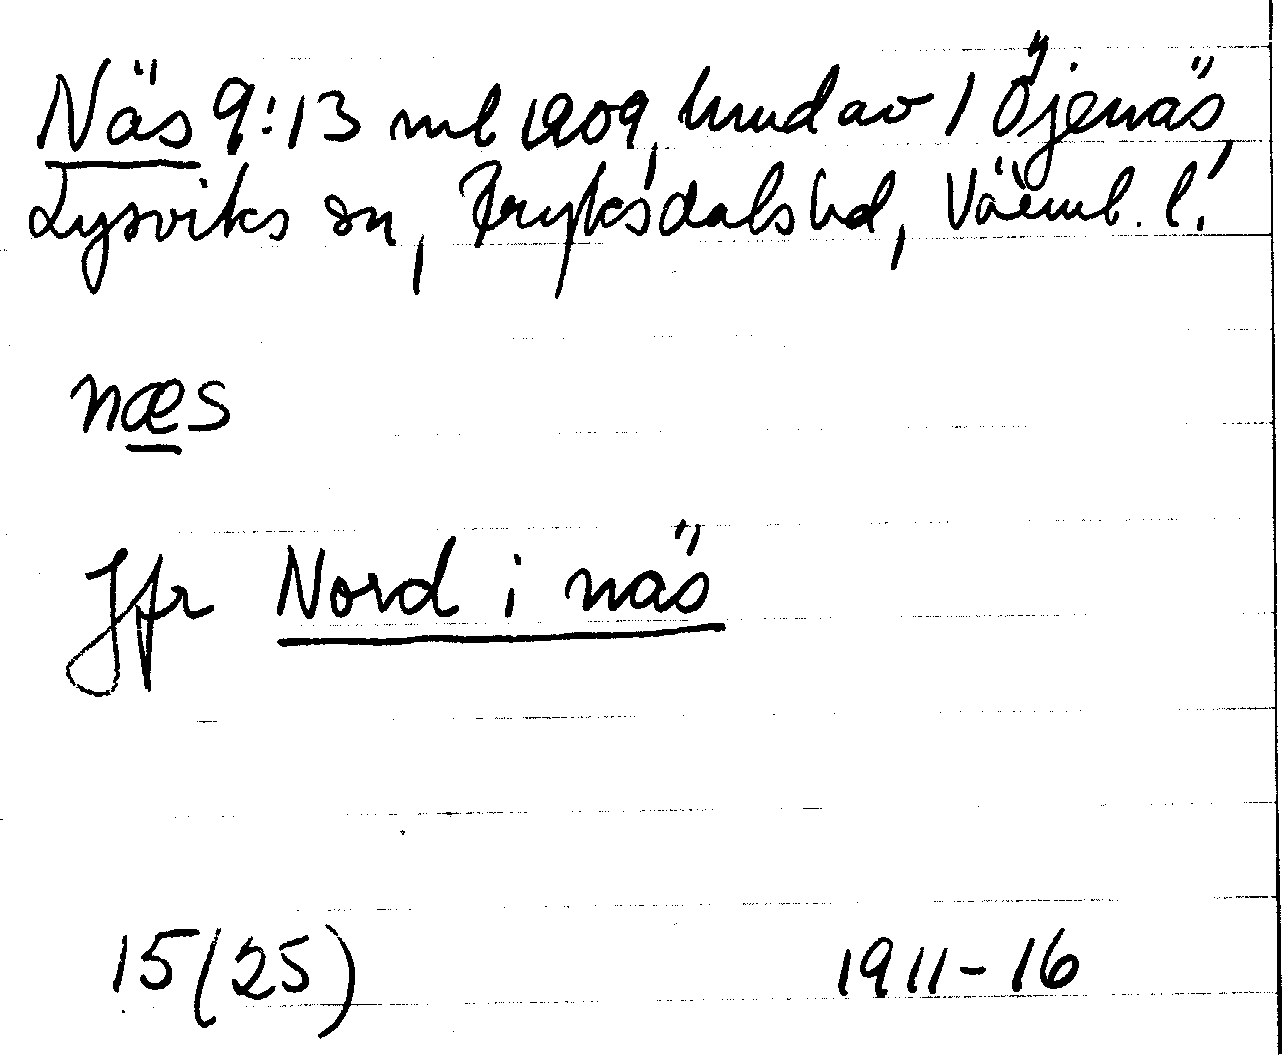 Näs 9:13 ml 1909, hmd av 1 Öjenäs,
Lysviks sn, Fryksdals hd, Värml. l.
næs
Jfr Nord i näs
15(25) 1911-16